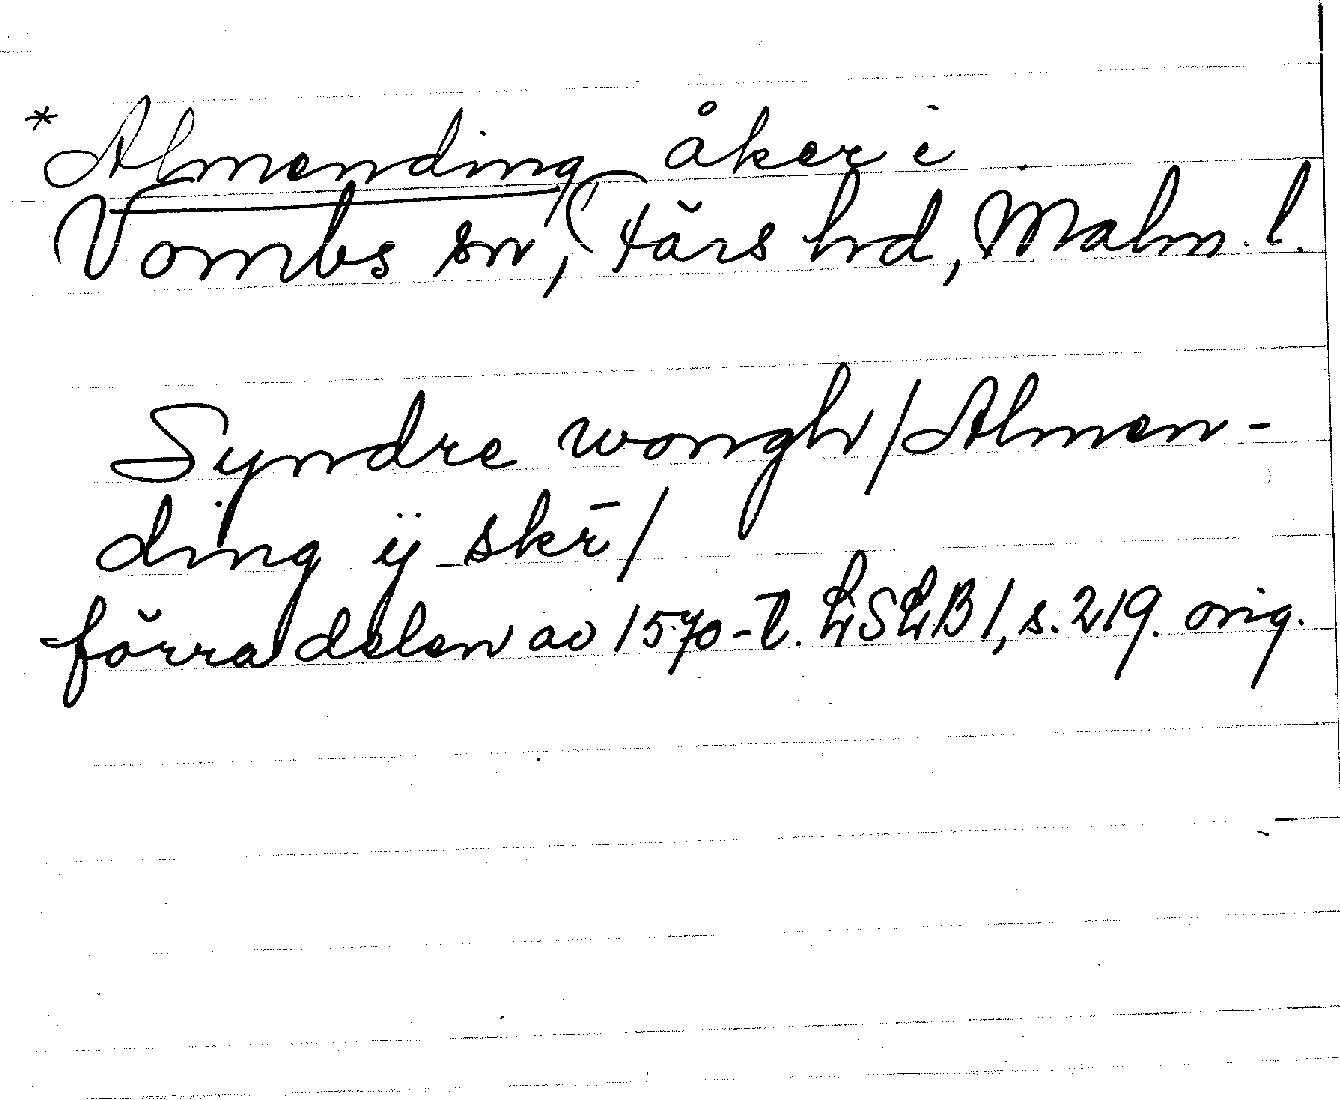 *Almending åker i
Vombs sn, Färs hd, Malm. l.
Syndre wongh / Almen-
ding ÿ skr̄ /
förra delen av 1570-t. LSLB 1, s. 219. orig.